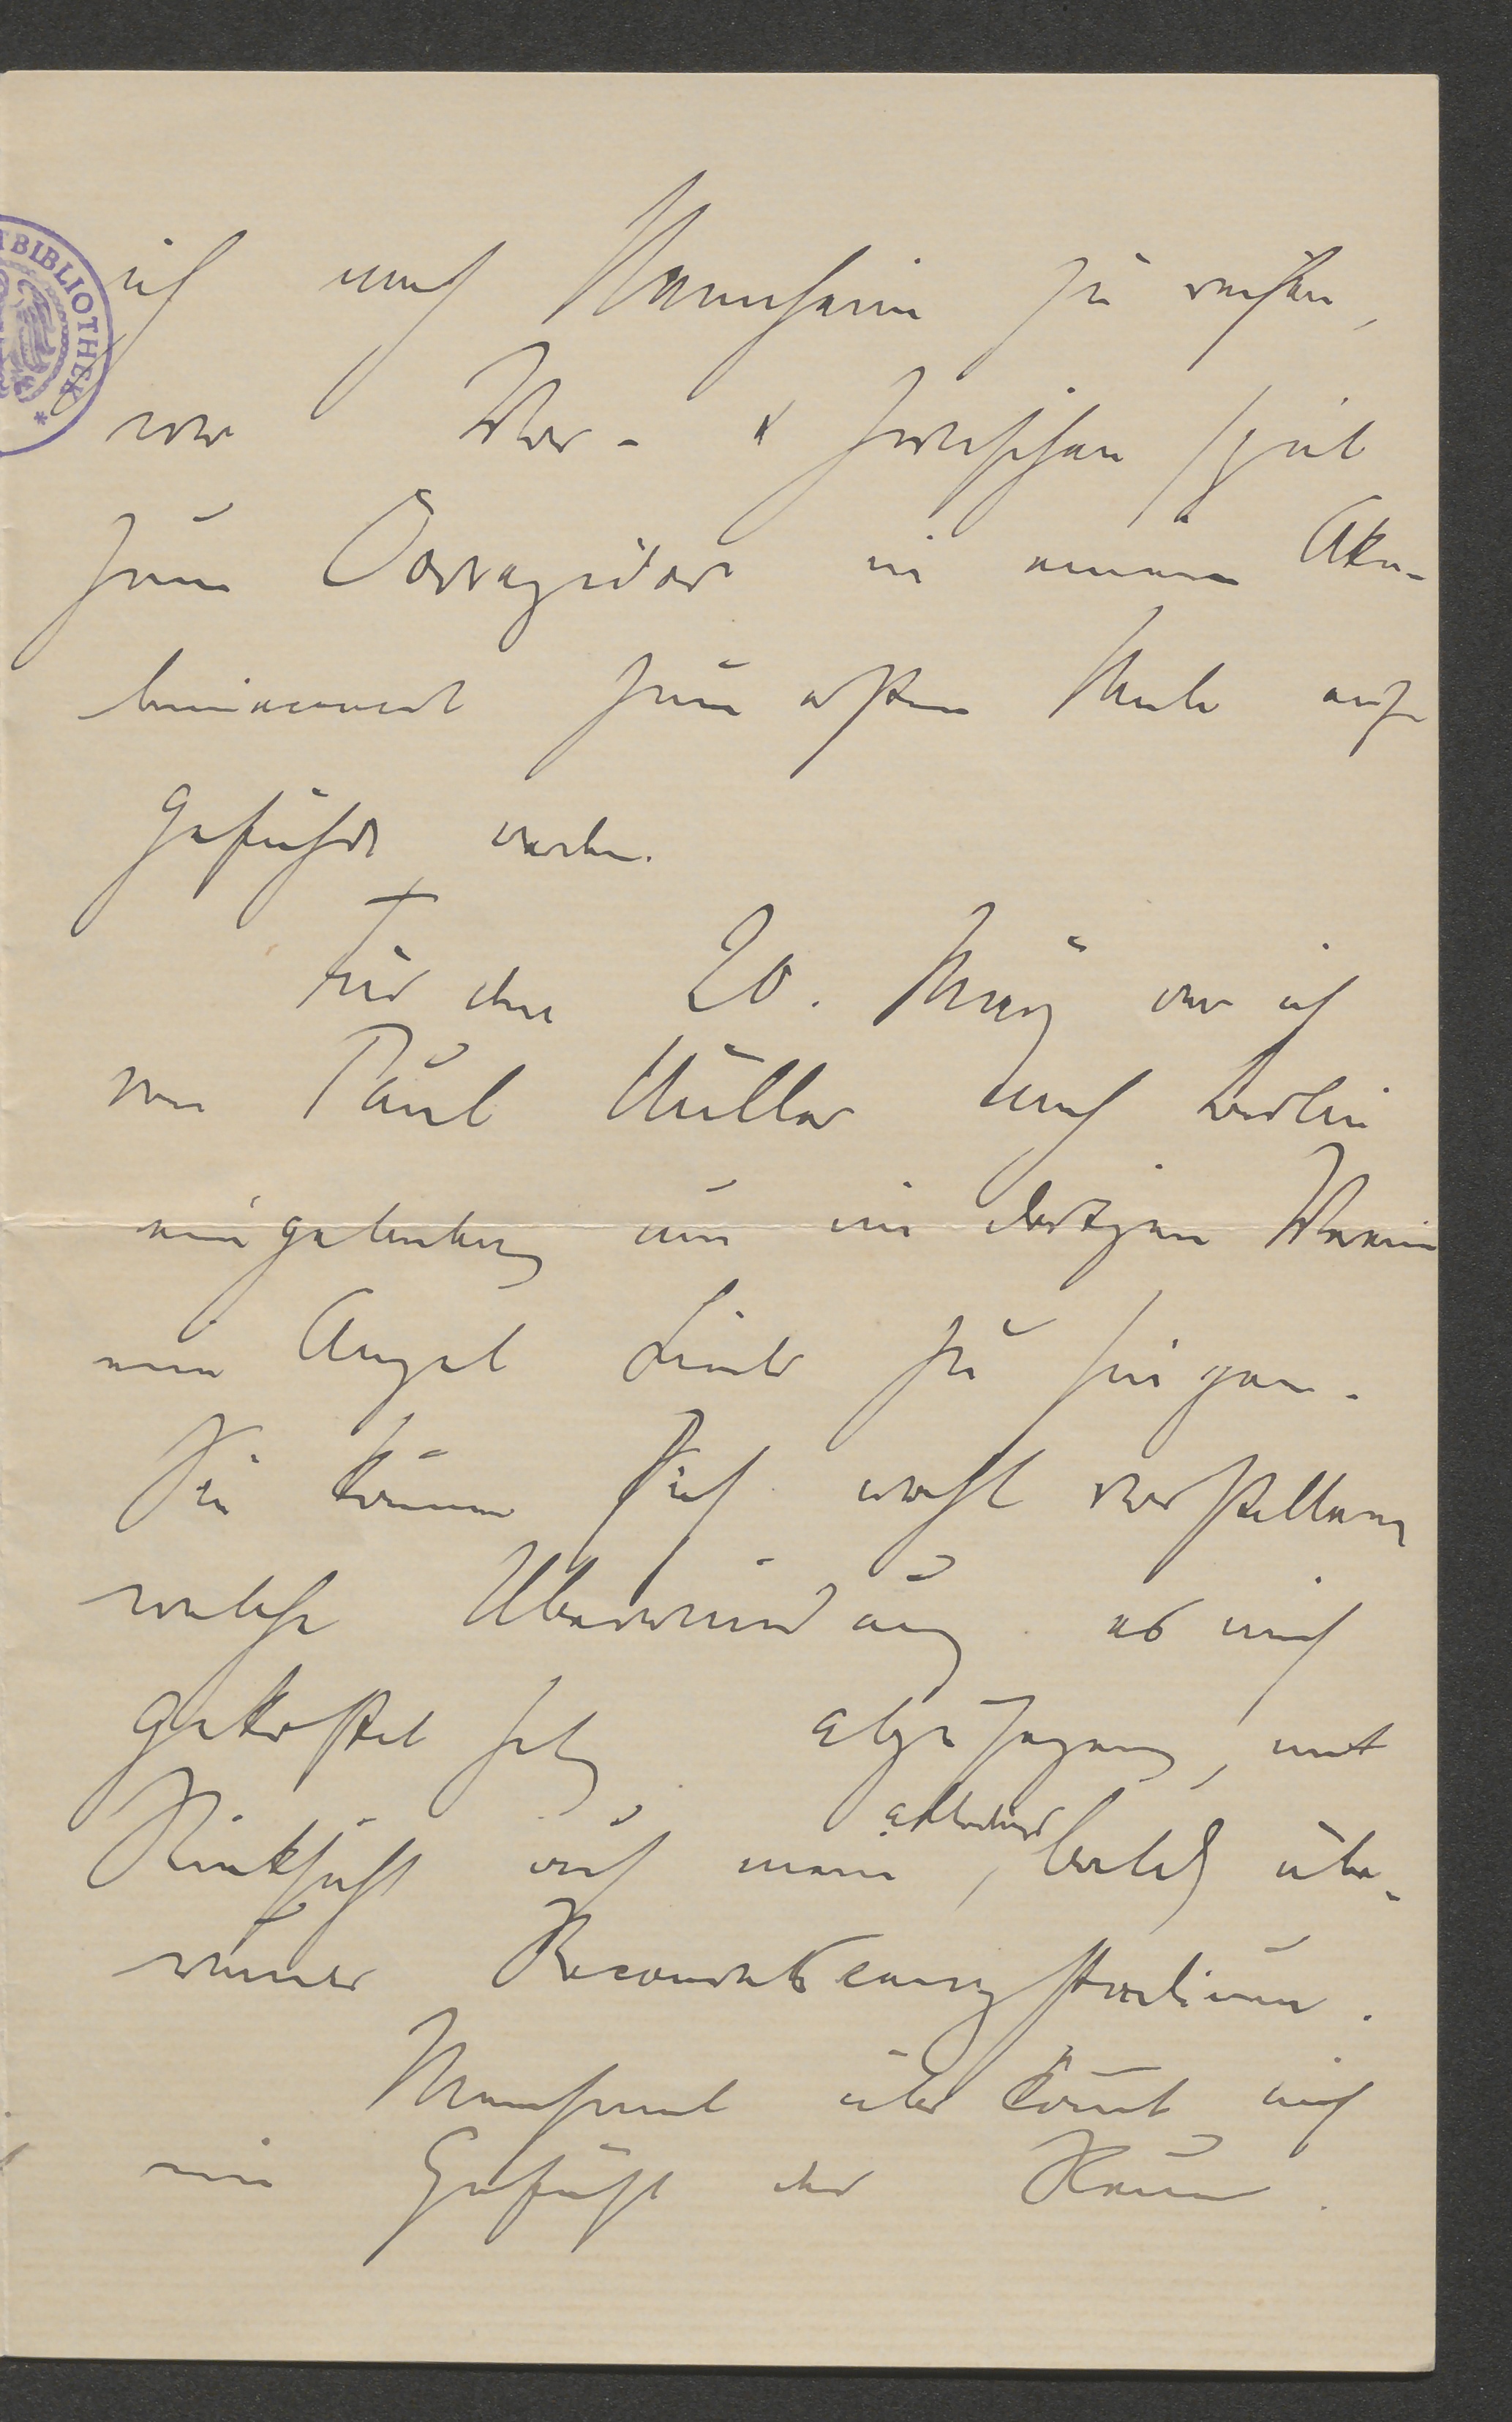 TBIBLIOTHEK *
ich nach Mannheim zu reisen,
wo Vor- & Zwischenspiel
zum Corregidor in einem Aka-
demieconcert zum ersten Male auf
geführt werden.
Für den 20. März war ich
von Paul Müller nach Berlin
eingeladen um im dortigen Verein
ein Angel Lieder zu singen.
Sie können Sich wohl vorstellen
welche Überwindung es mich
gekostet hat, abzusagen, mit
Rücksicht auf mein, allerdings bald über-
wundenes Reconvalescenzstadium.
Manchmal überkömt mich
ein Gefühl der